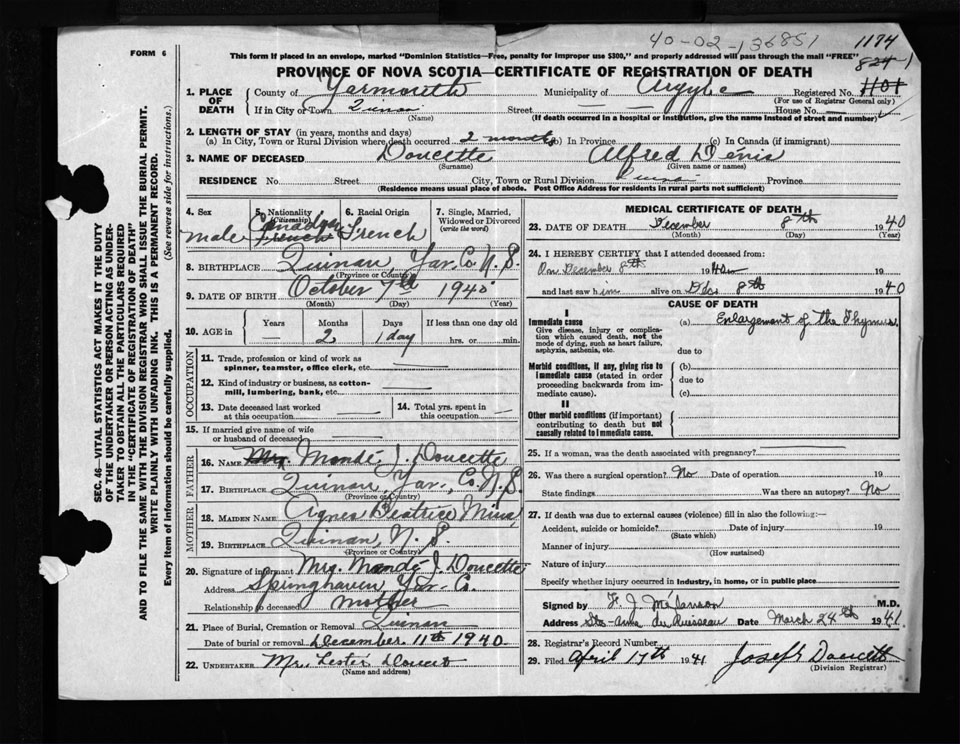 40-02-136851 1174
FORM 6
This form if placed in an envelope, marked "Dominion Statistics—Free, penalty for improper use $300," and properly addressed will pass through the mail "FREE" 824-1
PROVINCE OF NOVA SCOTIA—CERTIFICATE OF REGISTRATION OF DEATH
1. PLACE OF DEATH County of Yarmouth Municipality of Argyle Registered No. 1101
(For use of Registrar General only)
If in City or Town Quinan (Name) Street House No. —
(If death occurred in a hospital or institution, give the name instead of street and number)
2. LENGTH OF STAY (in years, months and days)
(a) In City, Town or Rural Division where death occurred 2 months (b) In Province (c) In Canada (if immigrant)
3. NAME OF DECEASED Doucette (Surname) Alfred Dénis (Given name or names)
RESIDENCE No. Street City, Town or Rural Division Quinan Province
(Residence means usual place of abode. Post Office Address for residents in rural parts not sufficient)
4. Sex male
5. Nationality (Citizenship) Canadian French
6. Racial Origin French
7. Single, Married, Widowed or Divorced (write the word)
8. BIRTHPLACE Quinan, Yar. Co. N. S.
(Province or Country)
9. DATE OF BIRTH October 7th 1940
(Month) (Day) (Year)
10. AGE in Years — Months 2 Days 1 day If less than one day old hrs. or min.
OCCUPATION
11. Trade, profession or kind of work as spinner, teamster, office clerk, etc.
12. Kind of industry or business, as cotton-mill, lumbering, bank, etc.
13. Date deceased last worked at this occupation
14. Total yrs. spent in this occupation —
15. If married give name of wife or husband of deceased
FATHER
16. NAME Mrs Mandé J. Doucette
17. BIRTHPLACE Quinan, Yar., Co. N. S.
(Province or Country)
MOTHER
18. MAIDEN NAME Agnes Beatrice Mius
19. BIRTHPLACE Quinan, N. S.
(Province or Country)
20. Signature of informant Mrs. Mandé J. Doucette
Address Springhaven, Yar. Co.
Relationship to deceased mother
21. Place of Burial, Cremation or Removal Quinan
Date of burial or removal December 11th 1940
22. UNDERTAKER Mr. Lester Doucet
(Name and address)
MEDICAL CERTIFICATE OF DEATH
23. DATE OF DEATH December 8th 1940
(Month) (Day) (Year)
24. I HEREBY CERTIFY that I attended deceased from:
On December 8th 1940 19
and last saw him alive on Dec. 8th 1940
CAUSE OF DEATH
I
Immediate cause (a) Enlargement of the Thymus
Give disease, injury or complication which caused death, not the mode of dying, such as heart failure, asphyxia, asthenia, etc. due to
Morbid conditions, if any, giving rise to immediate cause (stated in order proceeding backwards from immediate cause). (b) due to (c)
II
Other morbid conditions (if important) contributing to death but not causally related to immediate cause.
25. If a woman, was the death associated with pregnancy?
26. Was there a surgical operation? No Date of operation 19
State findings Was there an autopsy? No
27. If death was due to external causes (violence) fill in also the following:—
Accident, suicide or homicide? Date of injury 19
(State which)
Manner of injury
(How sustained)
Nature of injury
Specify whether injury occurred in industry, in home, or in public place
Signed by F. J. Mélanson M.D.
Address Ste-Anne du Ruisseau Date March 24th 1941
28. Registrar's Record Number
29. Filed April 17th 1941 Joseph Doucette
(Division Registrar)
SEC. 46—VITAL STATISTICS ACT MAKES IT THE DUTY
OF THE UNDERTAKER OR PERSON ACTING AS UNDER-
TAKER TO OBTAIN ALL THE PARTICULARS REQUIRED
IN THE "CERTIFICATE OF REGISTRATION OF DEATH"
AND TO FILE THE SAME WITH THE DIVISION REGISTRAR WHO SHALL ISSUE THE BURIAL PERMIT.
WRITE PLAINLY WITH UNFADING INK. THIS IS A PERMANENT RECORD.
Every item of information should be carefully supplied. (See reverse side for instructions.)